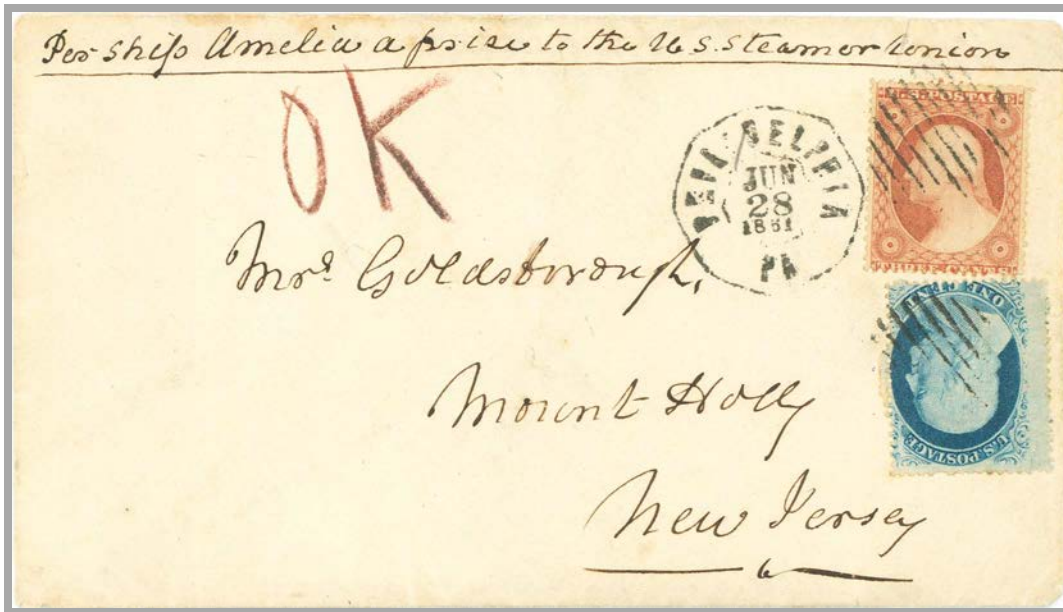 Per Ship Amelia a prize to the U.S. Steamer Union
OK
PHILADELPHIA
JUN
28
1861
PA
U.S. POSTAGE
THREE CENTS
Mrs. Goldsborough,
ONE CENT
U.S. POSTAGE
Mount Holly
New Jersey